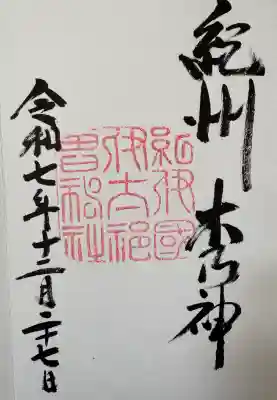 紀州 木の神
紀伊國
伊太祁
曽神社
令和七年十二月二十七日